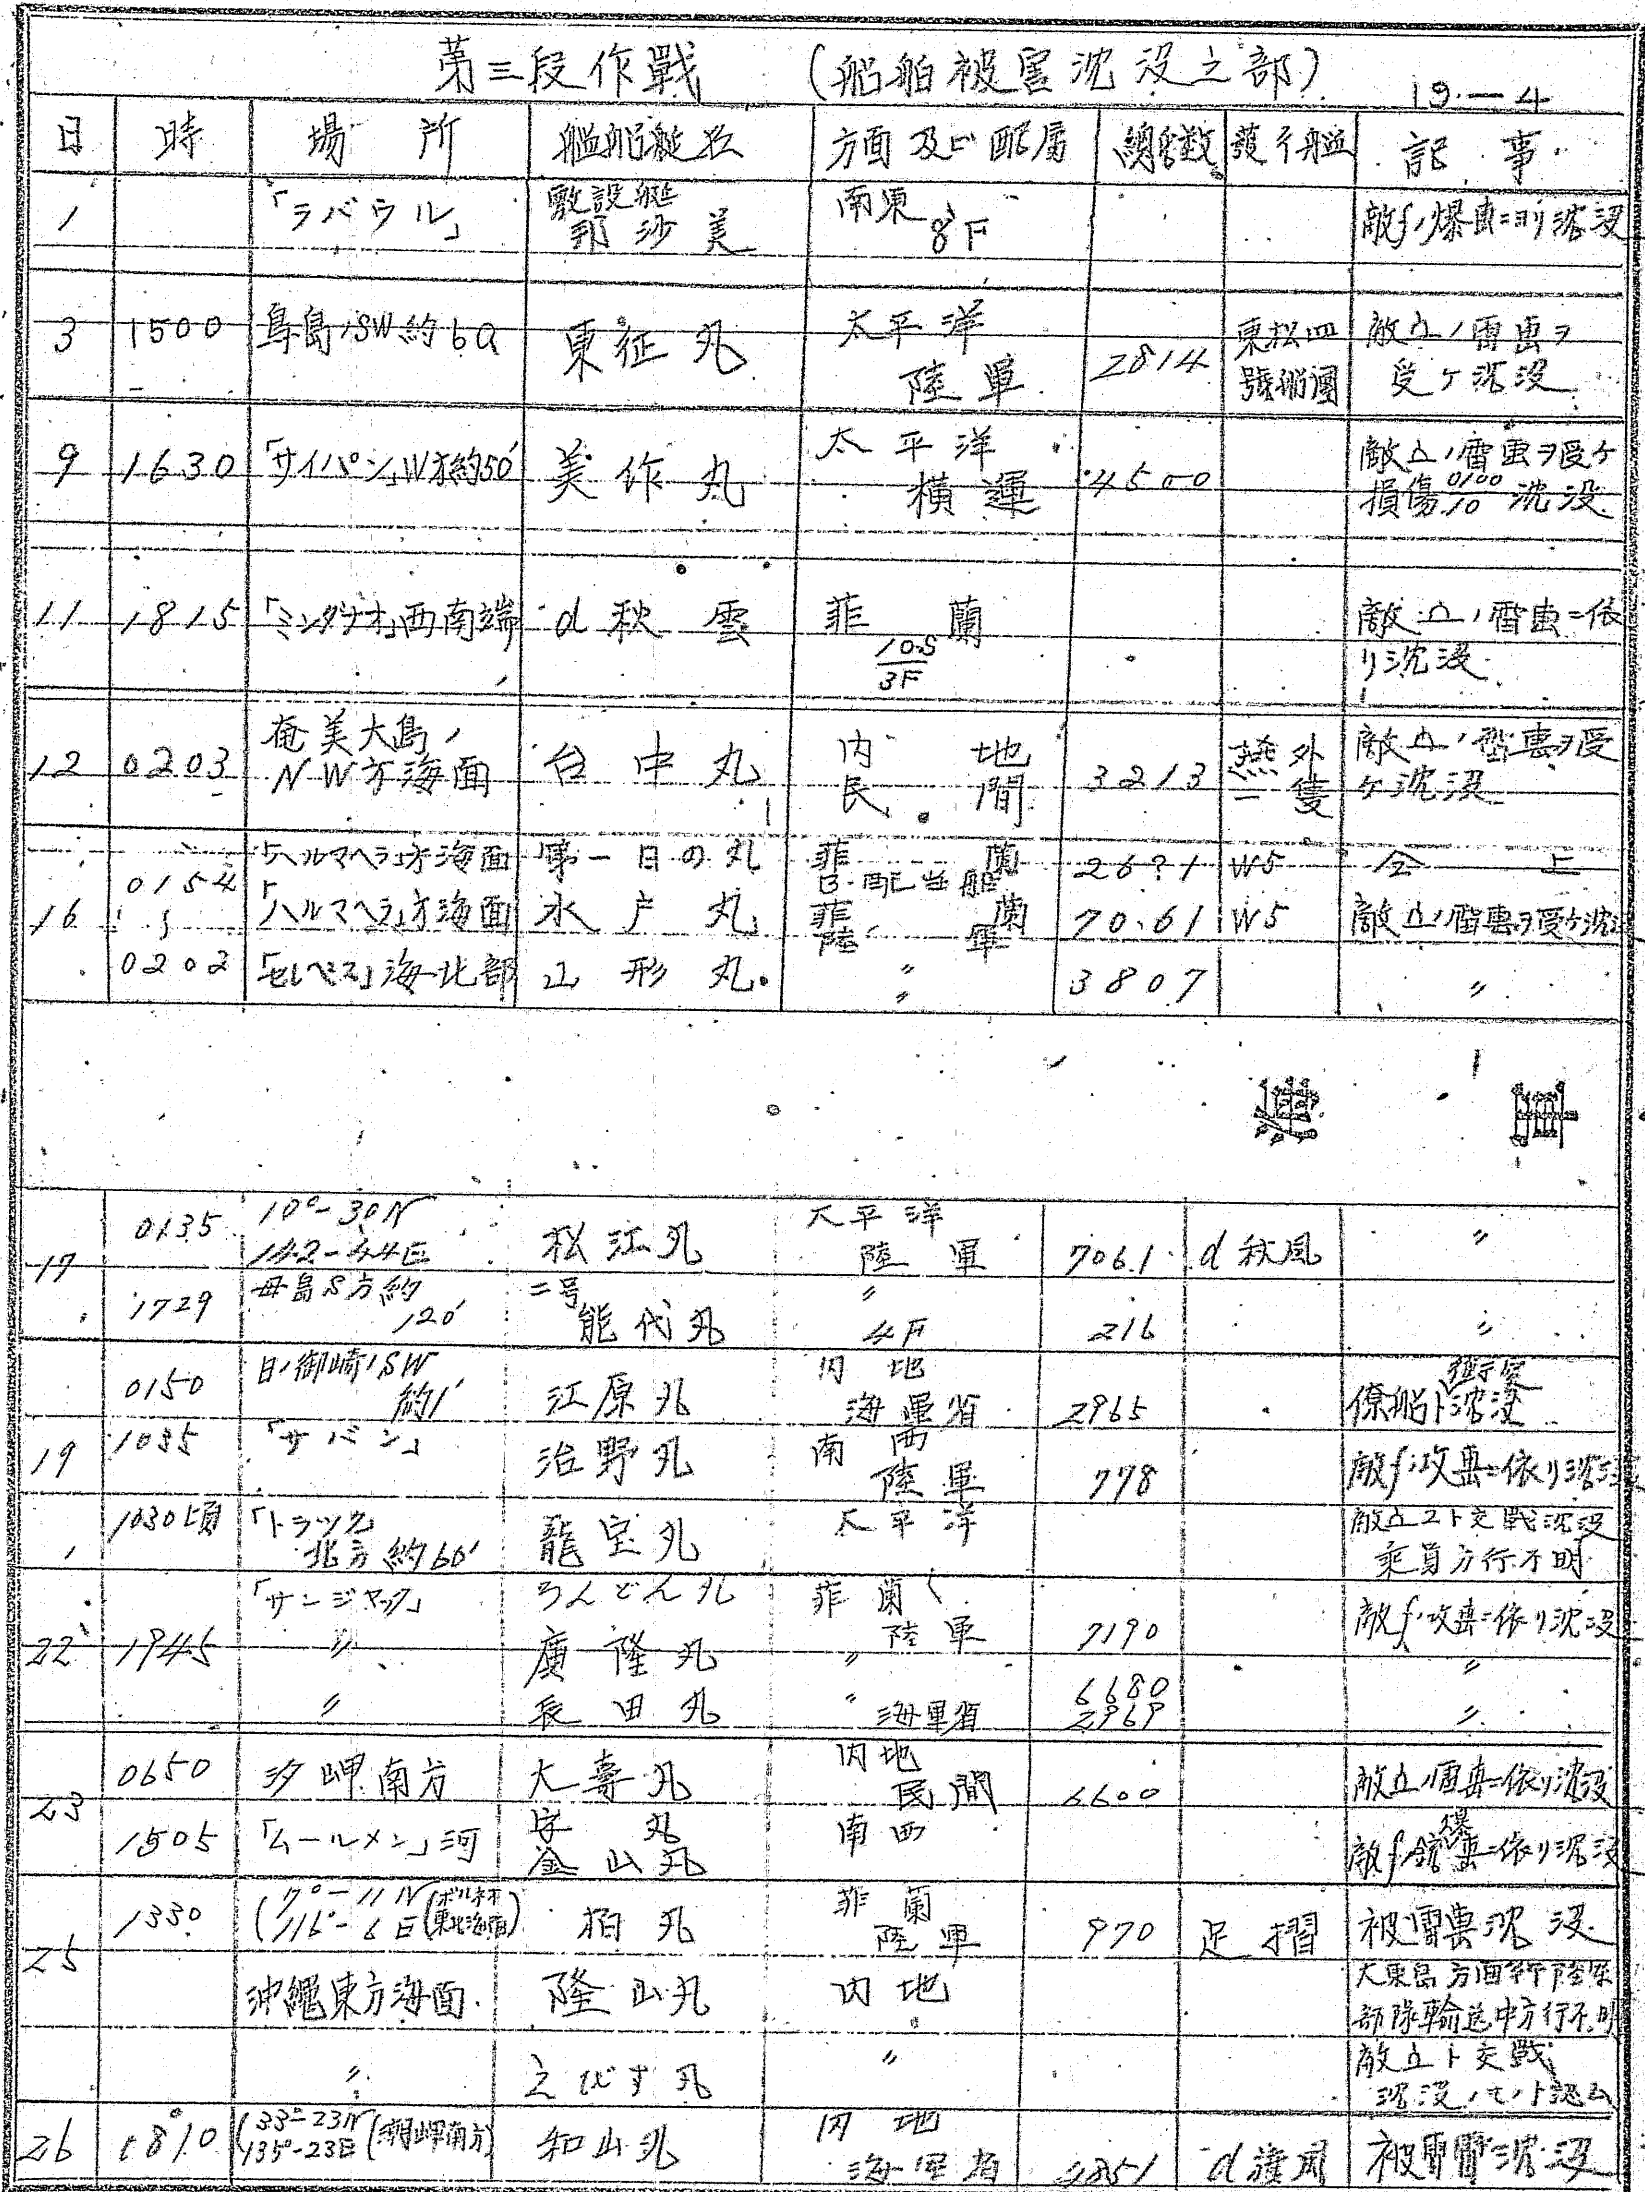 第三段作戰 (船舶被害沈没之部) 19.—4
日 時 場所 艦船艇名 方面及ビ配属 總噸数 護行艦 記事
1 「ラバウル」 敷設艇 那沙美 南東 8F 敵f爆撃ニヨリ沈没
3 1500 鳥島ノSW約60 東征丸 太平洋 陸軍 2814 東松四號船團 敵立ノ雷撃ヲ受ケ沈没
9 1630 「サイパン」W方約50′ 美作丸 太平洋 横運 4500 敵立ノ雷撃ヲ受ケ損傷 0100/10 沈没
11 1815 「ミンダナオ」西南端 d秋雲 菲蘭 10S/3F 敵立ノ雷撃ニ依リ沈没
12 0203 奄美大島ノNW方海面 台中丸 内地 民間 3213 燕外一隻 敵立ノ雷撃ヲ受ケ沈没
「ハルマヘラ」方海面 第一日の丸 菲蘭 B.配当船 26?1 W5 仝上
16 0154 「ハルマヘラ」方海面 水戸丸 菲蘭 陸軍 7061 W5 敵立ノ雷撃ヲ受ケ沈
0202 「セレベス」海北部 山形丸 〃 〃 3807 〃
17 0135 10°-30N 142-44E 松江丸 太平洋 陸軍 7061 d秋風 〃
1729 母島S方約120′ 二号能代丸 〃 4F 216 〃
0150 日ノ御崎ノSW約1′ 江原丸 内地 海運省 2965 僚船ト衝突沈没
19 1035 「サバン」 治野丸 南西 陸軍 778 敵f攻撃ニ依リ沈没
1030頃 「トラック」北方約60′ 龍宝丸 太平洋 敵立2ト交戰沈没 乘員方行不明
22 1945 「サンジャック」 ろんどん丸 菲蘭 陸軍 7190 敵f攻撃ニ依リ沈没
〃 廣隆丸 〃 6680 〃
〃 長田丸 〃 海軍省 2969 〃
23 0650 汐岬南方 大壽丸 内地 民間 6600 敵立ノ雷撃ニ依リ沈没
1505 「ムールメン」河 丸 金山丸 南西 敵f爆撃ニ依リ沈没
25 1330 (7°-11N 116°-6E (ボルネオ東北海面) 栢丸 菲蘭 陸軍 970 足摺 被雷撃沈没
沖繩東方海面 隆山丸 内地 〃 大東島方面行陸軍部隊輸送中方行不明
〃 えびす丸 〃 敵立ト交戰 沈没ノモノト認ム
26 1810 (33°-23N 135°-23E (潮岬南方) 和山丸 内地 海軍省 4851 被雷沈没